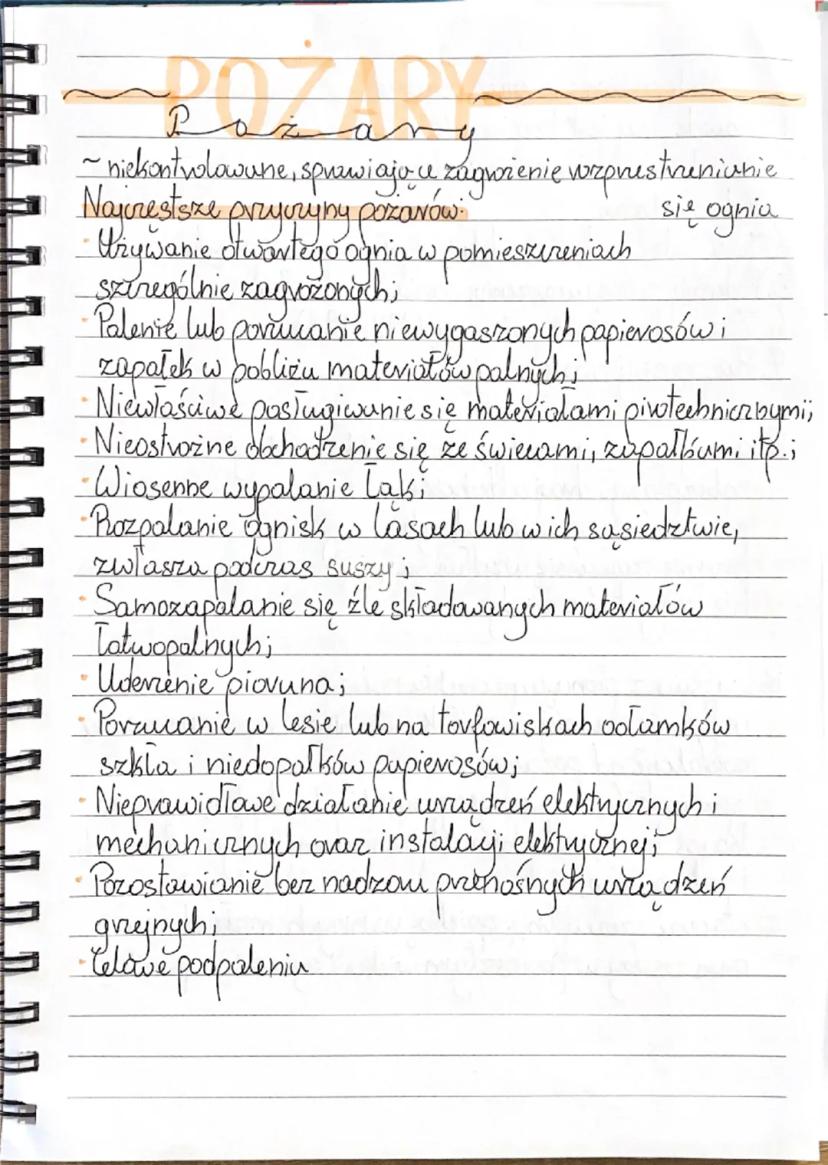 POŻARY
Pożary
~ niekontrolowane, sprawiające zagrożenie rozprzestrzenianie
się ognia
Najczęstsze przyczyny pożarów:
• Używanie otwartego ognia w pomieszczeniach
szczególnie zagrożonych;
• Palenie lub porzucanie niewygaszonych papierosów i
zapałek w pobliżu materiałów palnych;
• Niewłaściwe posługiwanie się materiałami pirotechnicznymi;
• Nieostrożne obchodzenie się ze świecami, zapałkami itp.;
• Wiosenne wypalanie łąk;
• Rozpalanie ognisk w lasach lub w ich sąsiedztwie,
zwłaszcza podczas suszy;
• Samozapalanie się źle składowanych materiałów
łatwopalnych;
• Uderzenie pioruna;
• Porzucanie w lesie lub na torfowiskach odłamków
szkła i niedopałków papierosów;
• Nieprawidłowe działanie urządzeń elektrycznych i
mechanicznych oraz instalacji elektrycznej;
• Pozostawianie bez nadzoru przenośnych urządzeń
grzejnych;
• Celowe podpalenia